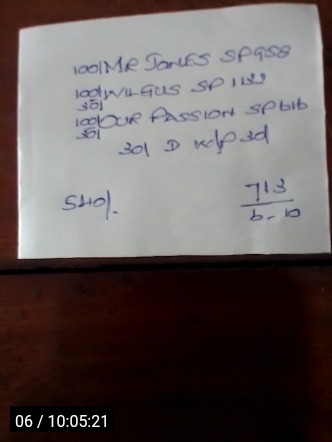 100/ MR JONES SP 958
100/ WILGUS SP 1132
30/
100/ OUR PASSION SP 616
30/
30/ D W/P 30/
540/.
713
6-10
06 / 10:05:21